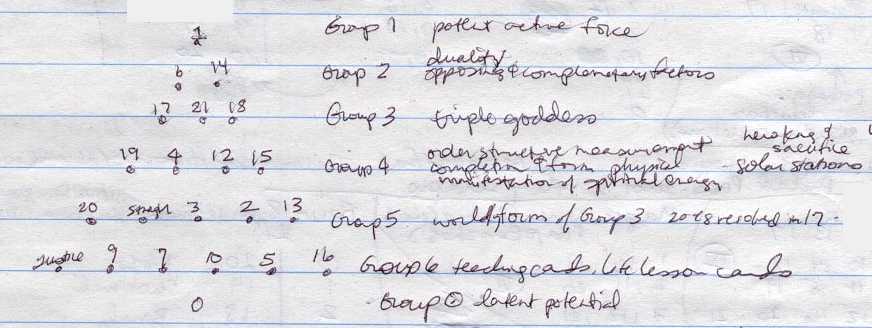 1 Group 1 potent active force
6 14 Group 2 duality opposing & complementary factors
17 21 18 Group 3 triple goddess
19 4 12 15 Group 4 order structure measurement completion & form physical manifestation of spiritual energy hero king & sacrifice - solar stations
20 strength 3 2 13 Group 5 worldly form of Group 3 20 & 8 resolved in 17.
Justice 9 7 10 5 16 Group 6 teaching cards, life lesson cards
0 Group 0 latent potential